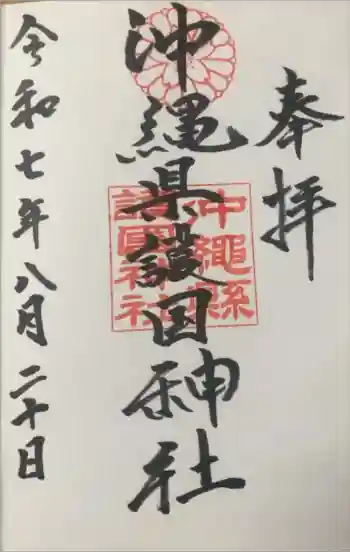 奉拝
沖縄県護国神社
沖繩縣
護國神社
令和七年八月二十日